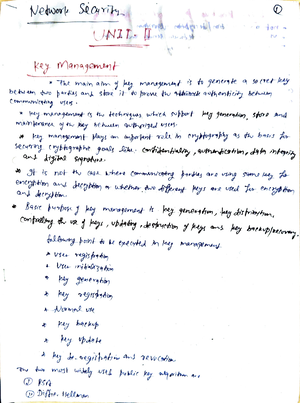 Network Security
1
UNIT - II
Key Management
* The main aim of key management is to generate a secret key
between two parties and store it to prove the authenticity between
communicating users.
* Key management is the techniques which support key generation, store and
maintenance of the key between authorized users.
* Key management plays an important role in cryptography as the basis for
securing cryptographic goals like confidentiality, authentication, data integrity
and digital signature.
* It is not the case where communicating parties are using same key for
encryption and decryption or whether two different keys are used for encryption
and decryption.
* Basic purpose of key management is key generation, key distribution,
controlling the use of keys, updating, destruction of keys and key backup/recovery.
following point to be executed in key management
* User registration
* User initialization
* key generation
* key registration
* Normal use
* key backup
* key update
* key de-registration and revocation
The two most widely used public key algorithm are
1 RSA
2 Diffie-Hellman